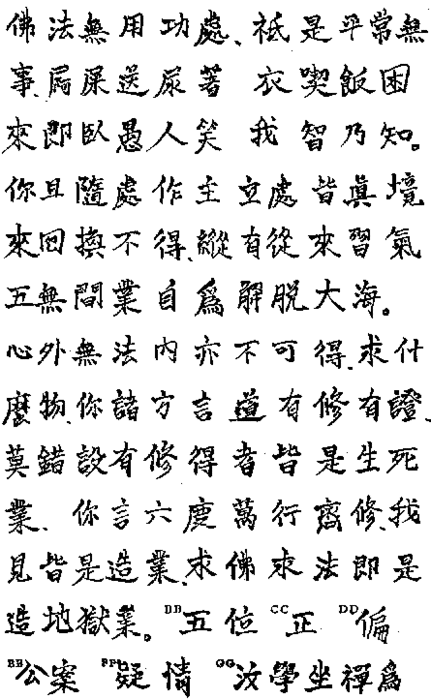 佛法無用功處、祇是平常無
事、屙屎送尿著 衣喫飯困
來即臥愚人笑 我 智乃知。
你且隨處作主立處皆眞境
來回換不得、縱有從來習氣
五無間業自為解脱大海。
心外無法内亦不可得、求什
麽物、你諸方言道有修有證、
莫錯設有修得者皆是生死
業、你言六度萬行齊修、我
見皆是造業、求佛求法即是
造地獄業。 BB五位 CC正 DD偏
EE公案 FF疑情 GG汝學坐禪為